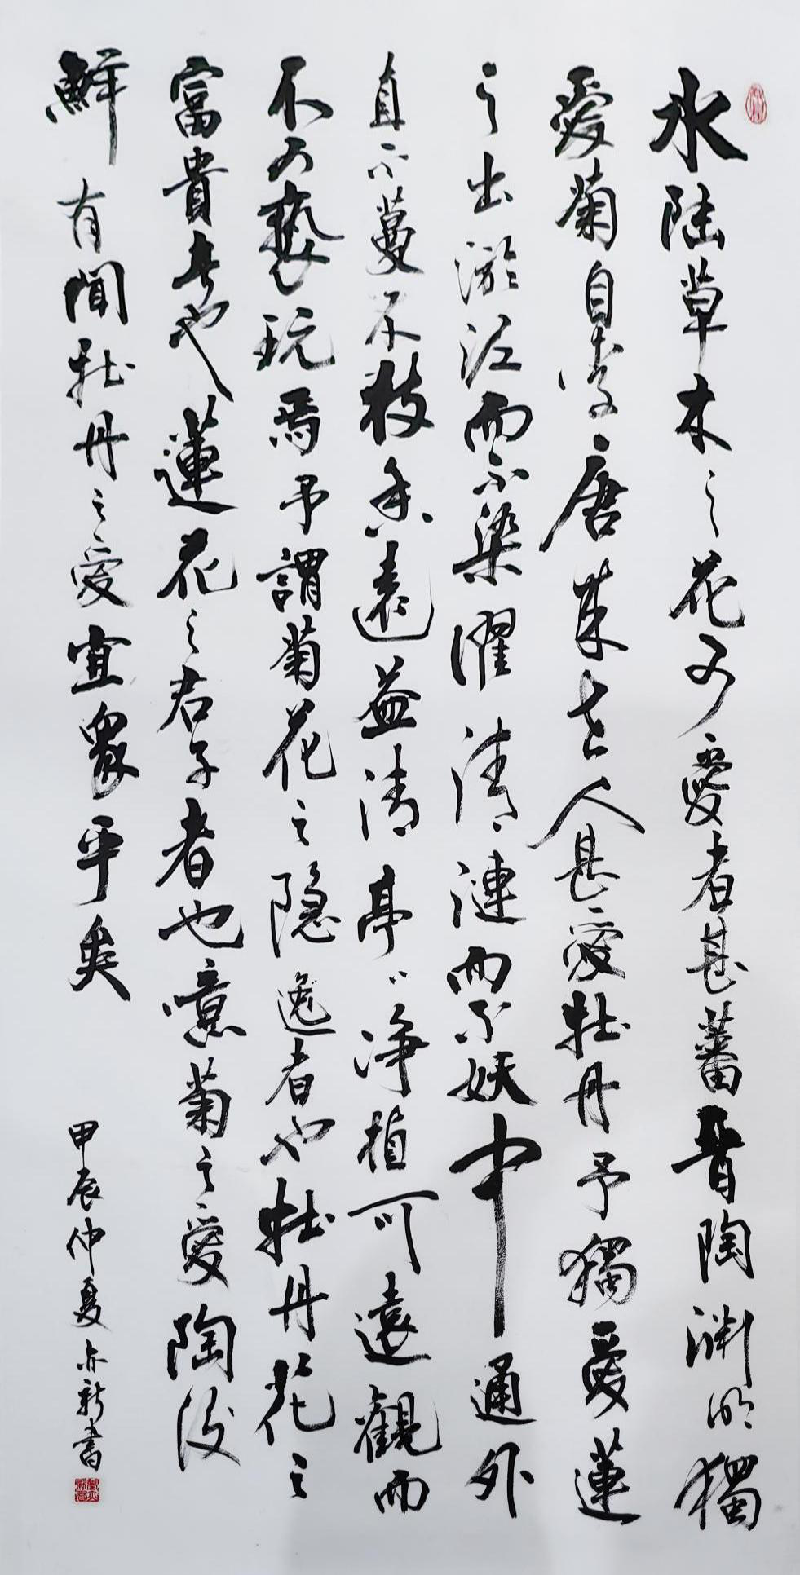 水陸草木之花可愛者甚蕃晉陶渊明獨
愛菊自李唐来世人甚愛牡丹予獨愛蓮
之出淤泥而不染濯清漣而不妖中通外
直不蔓不枝香遠益清亭〻净植可遠觀而
不可褻玩焉予謂菊花之隐逸者也牡丹花之
富貴者也蓮花之君子者也噫菊之愛陶後
鮮有聞牡丹之愛宜衆乎矣
甲辰仲夏亦新書